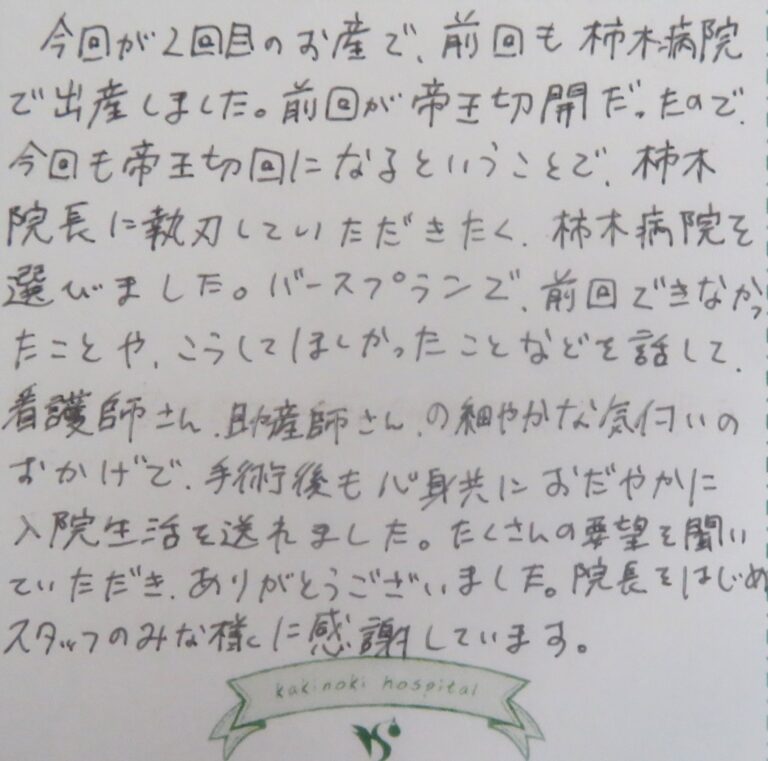 今回が2回目のお産で、前回も柿木病院
で出産しました。前回が帝王切開だったので、
今回も帝王切回になるということで、柿木
院長に執刀していただきたく、柿木病院を
選びました。バースプランで、前回できなかっ
たことや、こうしてほしかったことなどを話して、
看護師さん、助産師さん、の細やかな気付いの
おかげで、手術後も心身共におだやかに
入院生活を送れました。たくさんの要望を聞い
ていただき、ありがとうございました。院長をはじめ
スタッフのみな様に感謝しています。
kakinoki hospital